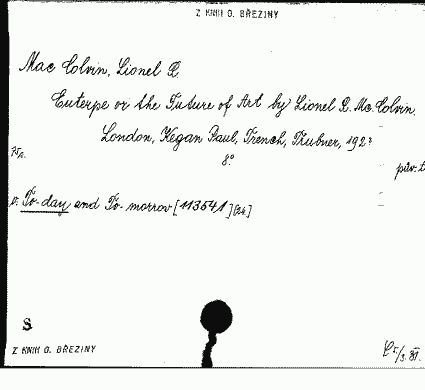 Z KNIH O. BŘEZINY
Mac Colvin, Lionel R.
Euterpe or the Future of Art by Lionel R. Mc. Colvin.
London, Kegan Paul, Trench, Trubner, 192?
8°
pův. t
v. To-day and To-morrow [113541] [24.]
S
Z KNIH O. BŘEZINY